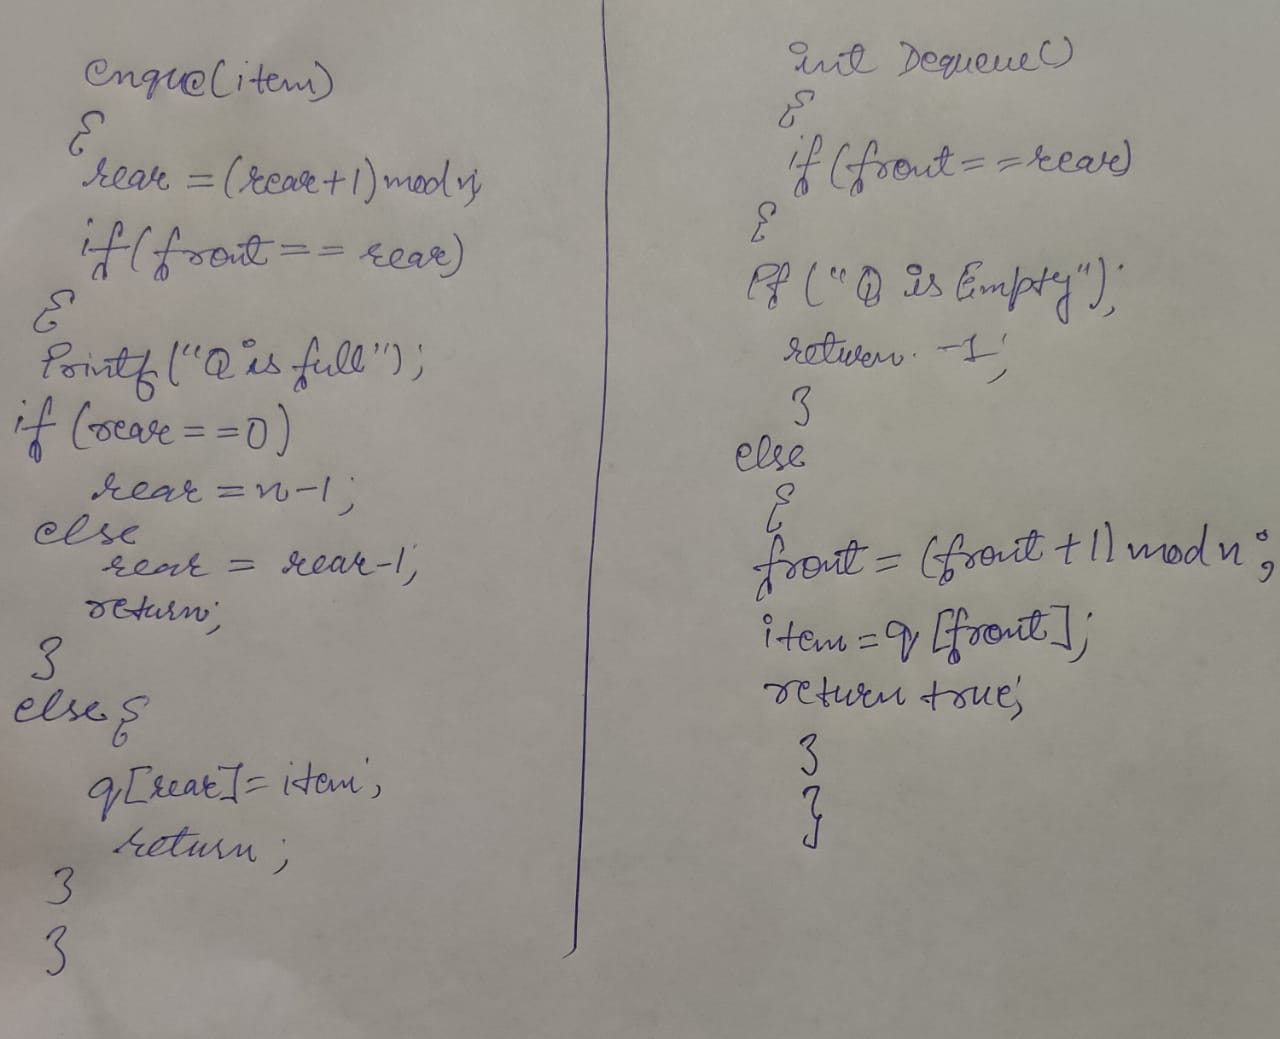 enque(item)
{
rear = (rear+1)mod n;
if(front == rear)
{
Printf("Q is full");
if (rear==0)
rear = n-1;
else
rear = rear-1;
return;
}
else {
q[rear]= item;
return;
}
}
int Dequeue()
{
if (front==rear)
{
Pf ("Q is Empty");
return. -1;
}
else
{
front = (front +1) mod n;
item = q [front];
return true;
}
}